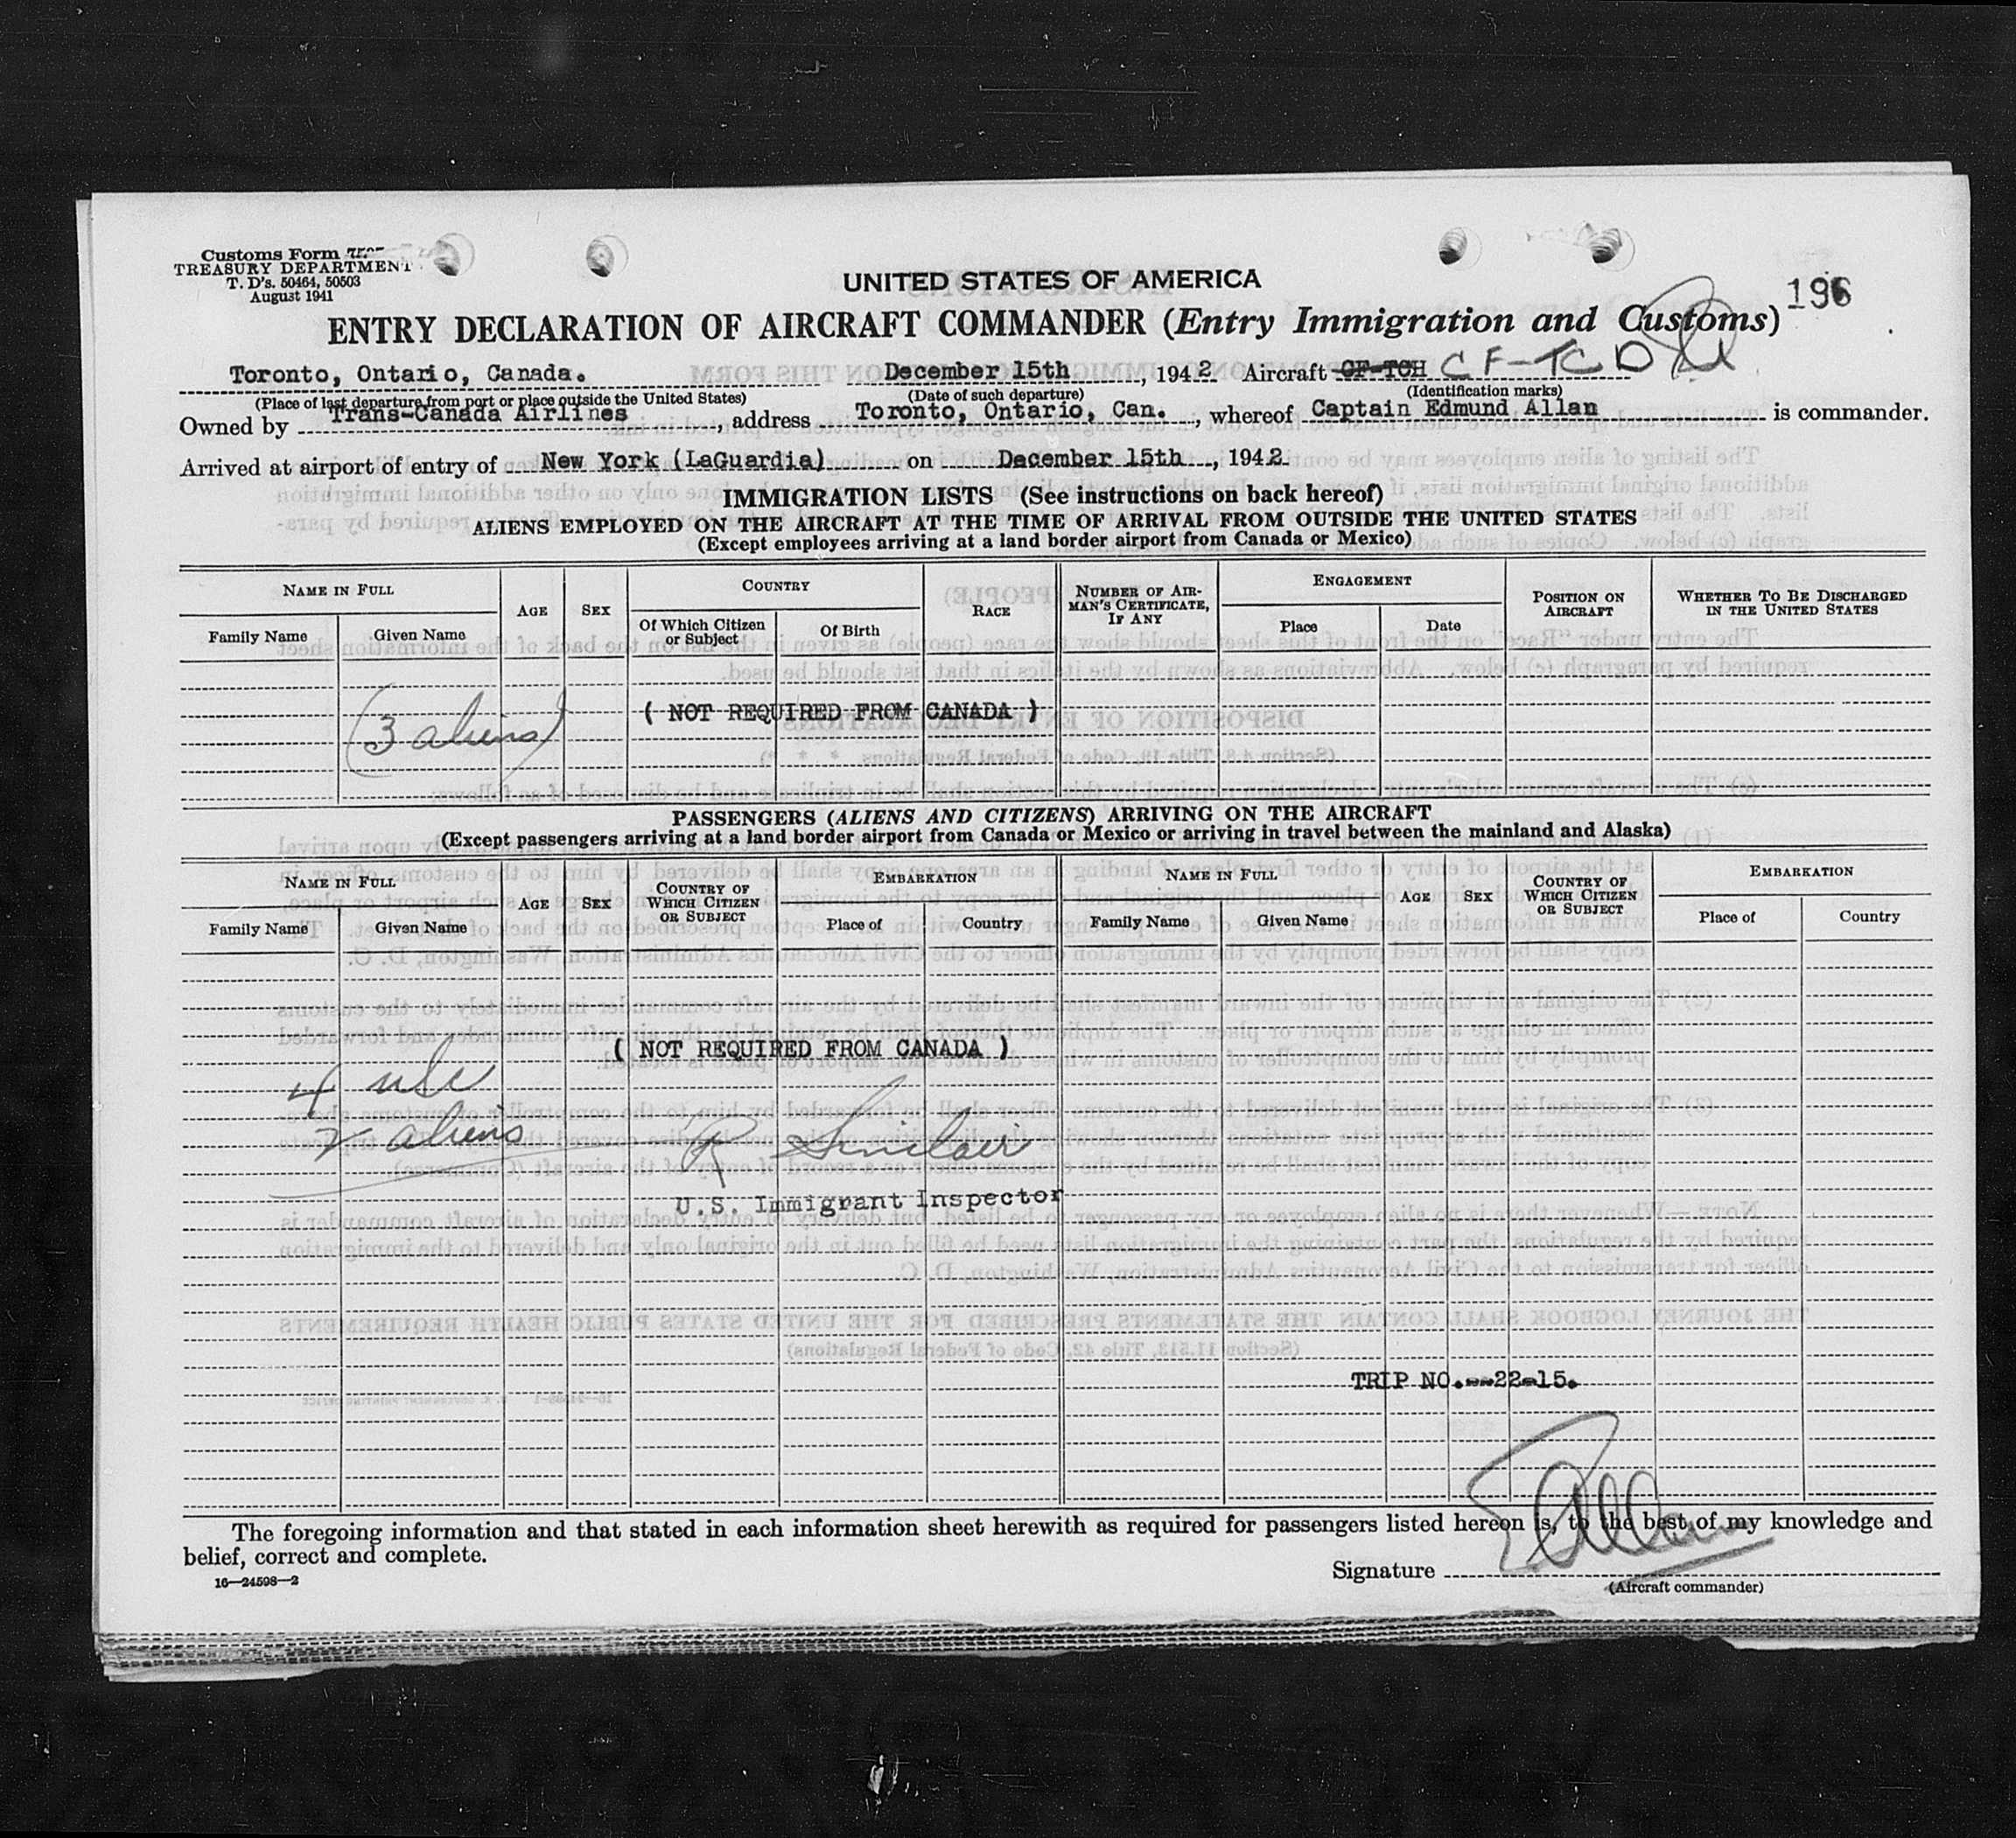 Customs Form
TREASURY DEPARTMENT
T. D's. 50464, 50503
August 1941
UNITED STATES OF AMERICA
196
ENTRY DECLARATION OF AIRCRAFT COMMANDER (Entry Immigration and Customs)
Toronto, Ontario, Canada. December 15th, 1942 Aircraft CF-TCH CF-TCD
(Place of last departure from port or place outside the United States) (Date of such departure) (Identification marks)
Owned by Trans-Canada Airlines, address Toronto, Ontario, Can., whereof Captain Edmund Allan is commander.
Arrived at airport of entry of New York (LaGuardia) on December 15th, 1942.
IMMIGRATION LISTS (See instructions on back hereof)
ALIENS EMPLOYED ON THE AIRCRAFT AT THE TIME OF ARRIVAL FROM OUTSIDE THE UNITED STATES
(Except employees arriving at a land border airport from Canada or Mexico)
NAME IN FULL AGE SEX COUNTRY RACE NUMBER OF AIRMAN'S CERTIFICATE, IF ANY ENGAGEMENT POSITION ON AIRCRAFT WHETHER TO BE DISCHARGED IN THE UNITED STATES
Family Name Given Name Of Which Citizen or Subject Of Birth Place Date
( NOT REQUIRED FROM CANADA )
(3 aliens)
PASSENGERS (ALIENS AND CITIZENS) ARRIVING ON THE AIRCRAFT
(Except passengers arriving at a land border airport from Canada or Mexico or arriving in travel between the mainland and Alaska)
NAME IN FULL AGE SEX COUNTRY OF WHICH CITIZEN OR SUBJECT EMBARKATION NAME IN FULL AGE SEX COUNTRY OF WHICH CITIZEN OR SUBJECT EMBARKATION
Family Name Given Name Place of Country Family Name Given Name Place of Country
( NOT REQUIRED FROM CANADA )
4 usc
2 aliens
R Sinclair
U.S. Immigrant Inspector
TRIP NO.--22-15.
The foregoing information and that stated in each information sheet herewith as required for passengers listed hereon is, to the best of my knowledge and
belief, correct and complete.
Signature E Allan
16—24598—2
(Aircraft commander)